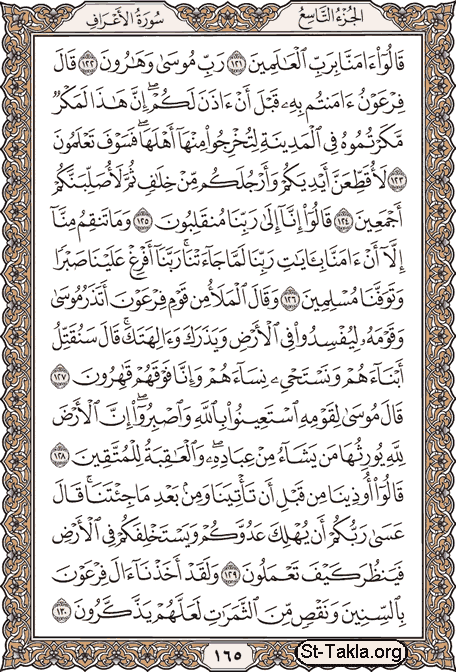 سُورَةُ الأَعْرَافِ الجُزْءُ التَّاسِعُ
قَالُوٓاْ ءَامَنَّا بِرَبِّ ٱلۡعَٰلَمِينَ ١٢١ رَبِّ مُوسَىٰ وَهَٰرُونَ ١٢٢ قَالَ
فِرۡعَوۡنُ ءَامَنتُم بِهِۦ قَبۡلَ أَنۡ ءَاذَنَ لَكُمۡۖ إِنَّ هَٰذَا لَمَكۡرٞ
مَّكَرۡتُمُوهُ فِي ٱلۡمَدِينَةِ لِتُخۡرِجُواْ مِنۡهَآ أَهۡلَهَاۖ فَسَوۡفَ تَعۡلَمُونَ
١٢٣ لَأُقَطِّعَنَّ أَيۡدِيَكُمۡ وَأَرۡجُلَكُم مِّنۡ خِلَٰفٖ ثُمَّ لَأُصَلِّبَنَّكُمۡ
أَجۡمَعِينَ ١٢٤ قَالُوٓاْ إِنَّآ إِلَىٰ رَبِّنَا مُنقَلِبُونَ ١٢٥ وَمَا تَنقِمُ مِنَّآ
إِلَّآ أَنۡ ءَامَنَّا بِـَٔايَٰتِ رَبِّنَا لَمَّا جَآءَتۡنَاۚ رَبَّنَآ أَفۡرِغۡ عَلَيۡنَا صَبۡرٗا
وَتَوَفَّنَا مُسۡلِمِينَ ١٢٦ وَقَالَ ٱلۡمَلَأُ مِن قَوۡمِ فِرۡعَوۡنَ أَتَذَرُ مُوسَىٰ
وَقَوۡمَهُۥ لِيُفۡسِدُواْ فِي ٱلۡأَرۡضِ وَيَذَرَكَ وَءَالِهَتَكَۚ قَالَ سَنُقَتِّلُ
أَبۡنَآءَهُمۡ وَنَسۡتَحۡيِۦ نِسَآءَهُمۡ وَإِنَّا فَوۡقَهُمۡ قَٰهِرُونَ ١٢٧
قَالَ مُوسَىٰ لِقَوۡمِهِ ٱسۡتَعِينُواْ بِٱللَّهِ وَٱصۡبِرُوٓاْۖ إِنَّ ٱلۡأَرۡضَ
لِلَّهِ يُورِثُهَا مَن يَشَآءُ مِنۡ عِبَادِهِۦۖ وَٱلۡعَٰقِبَةُ لِلۡمُتَّقِينَ ١٢٨
قَالُوٓاْ أُوذِينَا مِن قَبۡلِ أَن تَأۡتِيَنَا وَمِنۢ بَعۡدِ مَا جِئۡتَنَاۚ قَالَ
عَسَىٰ رَبُّكُمۡ أَن يُهۡلِكَ عَدُوَّكُمۡ وَيَسۡتَخۡلِفَكُمۡ فِي ٱلۡأَرۡضِ
فَيَنظُرَ كَيۡفَ تَعۡمَلُونَ ١٢٩ وَلَقَدۡ أَخَذۡنَآ ءَالَ فِرۡعَوۡنَ
بِٱلسِّنِينَ وَنَقۡصٖ مِّنَ ٱلثَّمَرَٰتِ لَعَلَّهُمۡ يَذَّكَّرُونَ ١٣٠
١٦٥
St-Takla.org